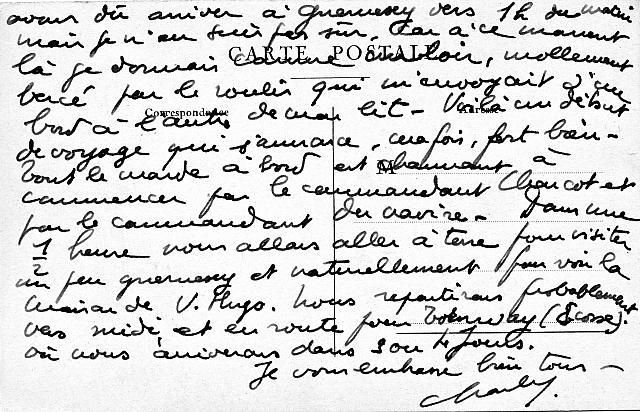 avons dû arriver à Guernesey vers 1h du matin
mais je n'en suis pas sûr, car à ce moment
CARTE POSTALE
là je dormais comme un loir, mollement
bercé par le roulis qui m'envoyait d'un
Correspondance
Adresse
bord à l'autre de mon lit - Voilà un début
de voyage qui s'annonce, ma foi, fort bien -
M
Tout le monde à bord est charmant à
commencer par le commandant Charcot et
par le commandant du navire - Dans une
1/2 heure nous allons aller à terre pour visiter
un peu Guernesey et naturellement pour voir la
maison de V. Hugo. Nous repartirons probablement
vers midi, et en route pour (Ecosse).
où nous arriverons dans 3 ou 4 jours.
Je vous embrasse bien tous -
Charley.